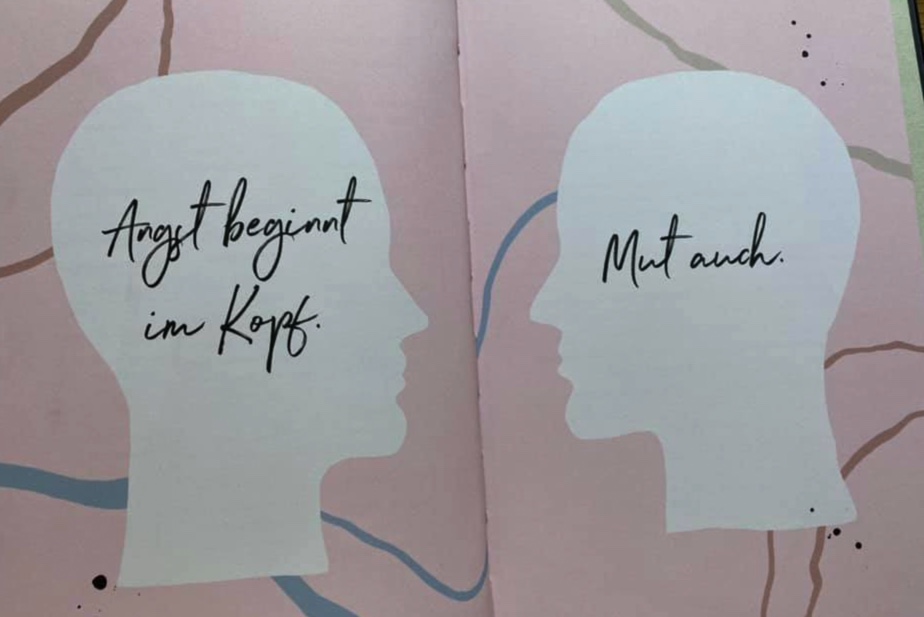 Angst beginnt
im Kopf.
Mut auch.